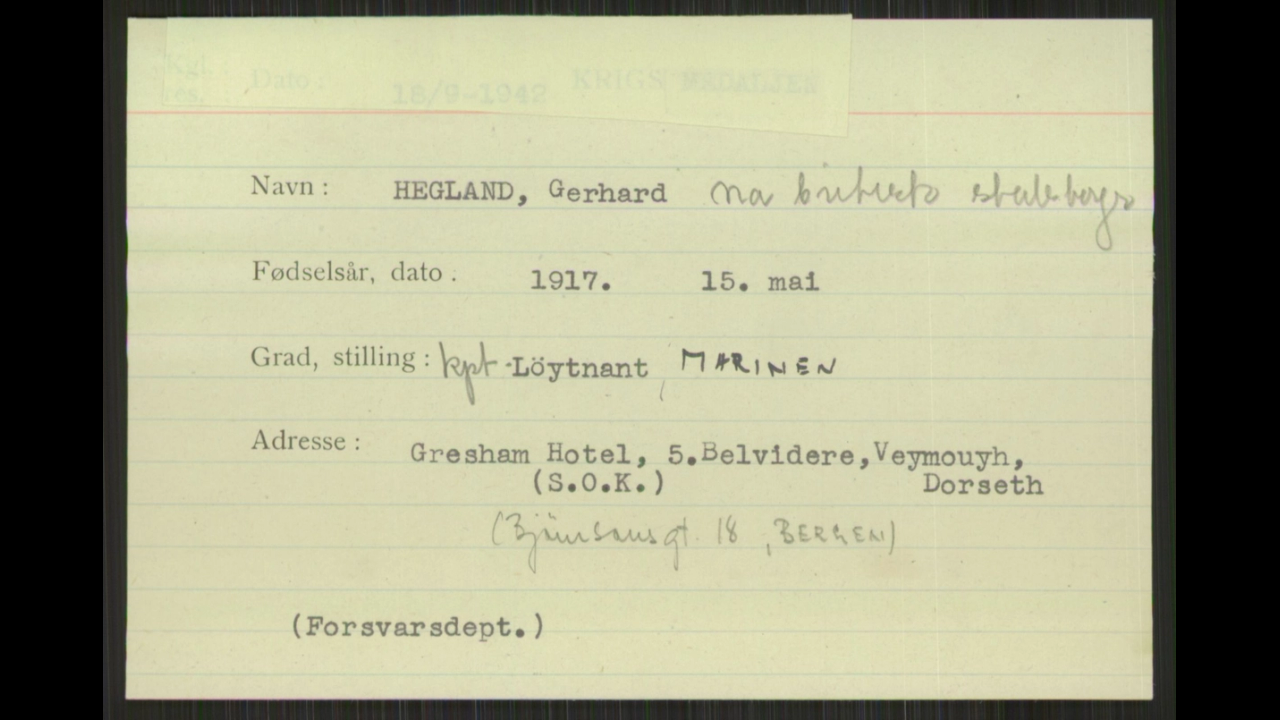 Kgl. res. Dato : 18/9-1942 KRIGS MEDALJEN
Navn : HEGLAND, Gerhard na britisk statsborger
Fødselsår, dato . 1917. 15. mai
Grad, stilling : kpt-Löytnant, MARINEN
Adresse : Gresham Hotel, 5.Belvidere,Veymouyh,
(S.O.K.) Dorseth
(Björnsonsgt. 18, BERGEN)
(Forsvarsdept.)